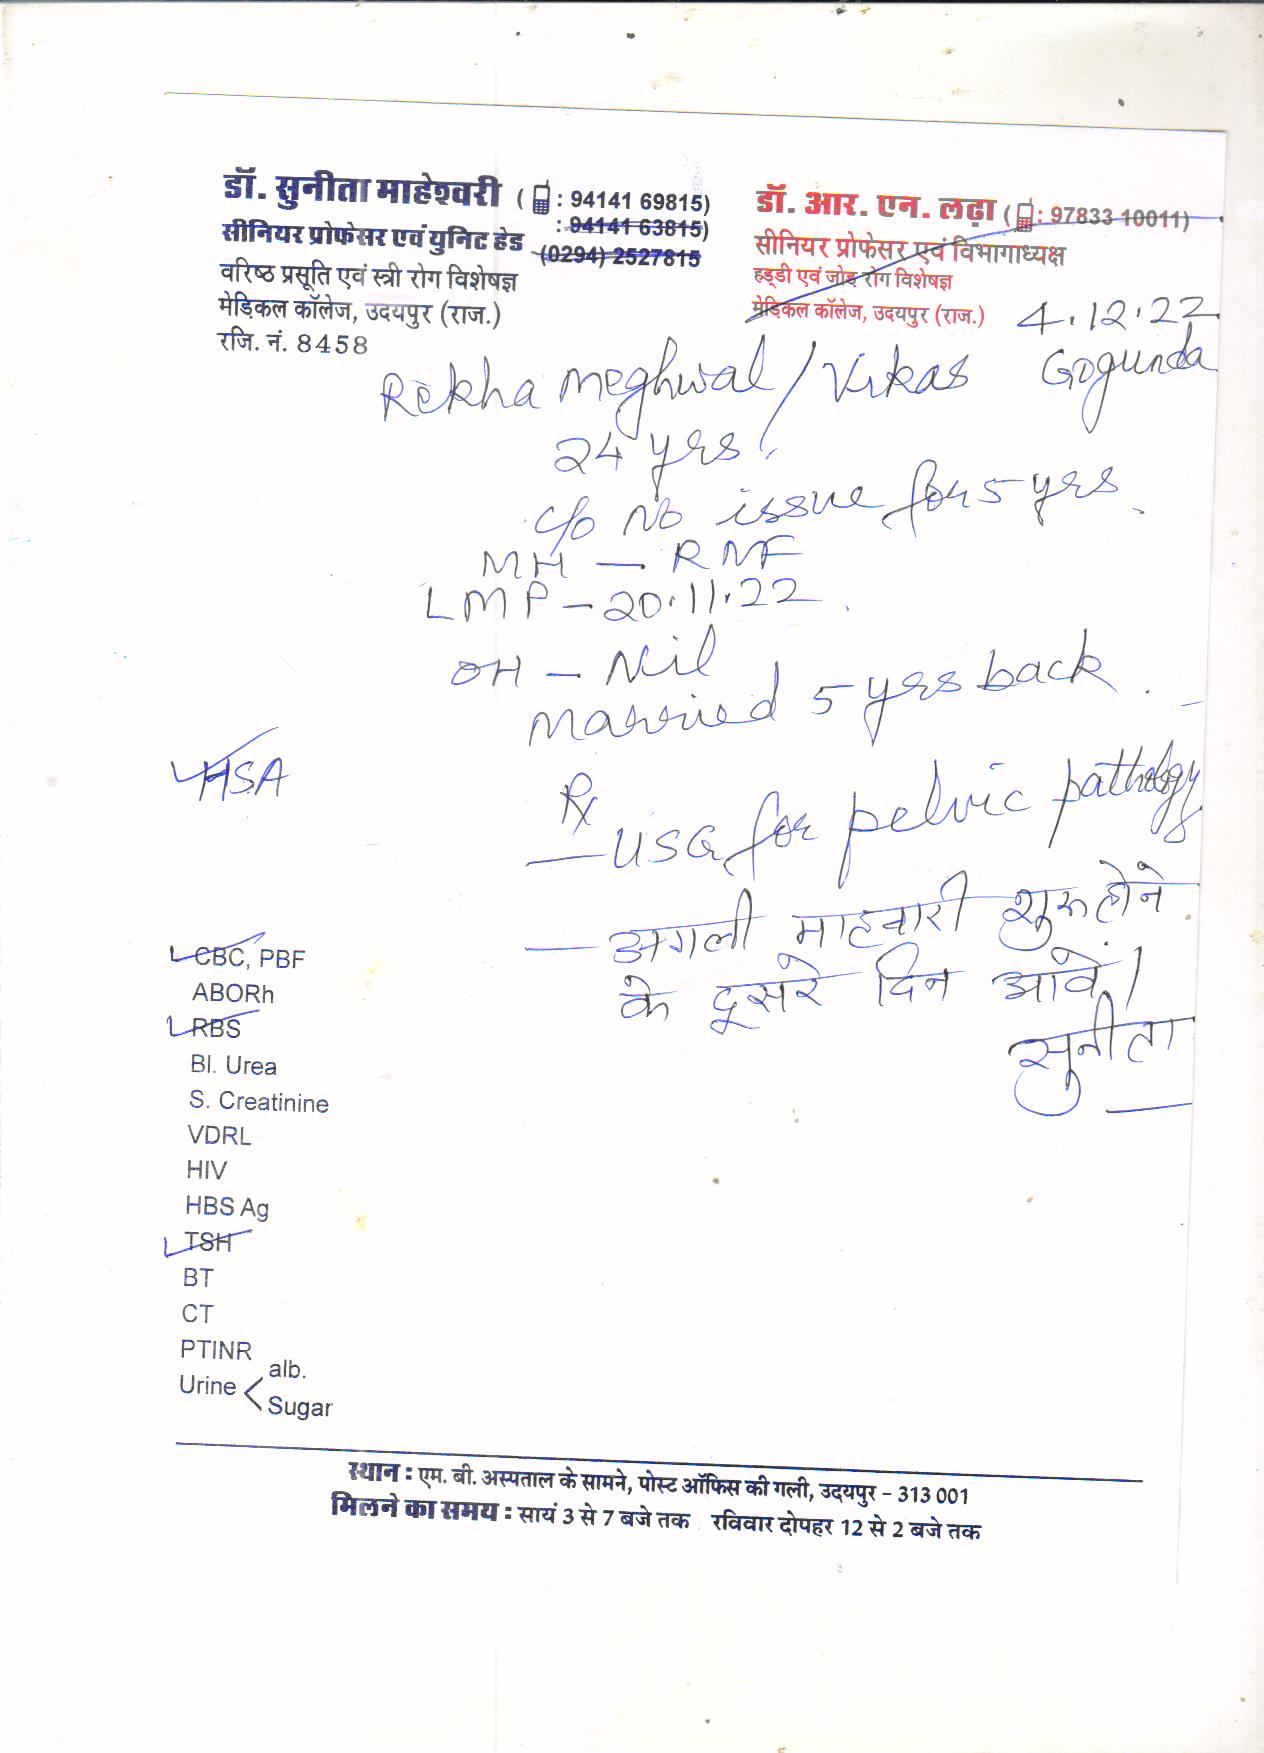 डॉ. सुनीता माहेश्वरी ( : 94141 69815)
: 94141 63815)
सीनियर प्रोफेसर एवं युनिट हेड (0294) 2527815
वरिष्ठ प्रसूति एवं स्त्री रोग विशेषज्ञ
मेडिकल कॉलेज, उदयपुर (राज.)
रजि. नं. 8458
डॉ. आर. एन. लढ़ा ( : 97833 10011)
सीनियर प्रोफेसर एवं विभागाध्यक्ष
हड्डी एवं जोड़ रोग विशेषज्ञ
मेडिकल कॉलेज, उदयपुर (राज.)
4.12.22
Rekha Meghwal / Vikas Gogunda
24 yrs
c/o No issue for 5 yrs.
MH — RNF
LMP – 20.11.22
OH – Nil
Married 5 yrs back
HSA
Rx
— USG for pelvic pathology
— अगली माहवारी शुरू होने
के दूसरे दिन आवें।
सुनीता
CBC, PBF
ABORh
RBS
Bl. Urea
S. Creatinine
VDRL
HIV
HBS Ag
TSH
BT
CT
PTINR
Urine < alb.
Sugar
स्थान : एम. बी. अस्पताल के सामने, पोस्ट ऑफिस की गली, उदयपुर – 313 001
मिलने का समय : सायं 3 से 7 बजे तक रविवार दोपहर 12 से 2 बजे तक